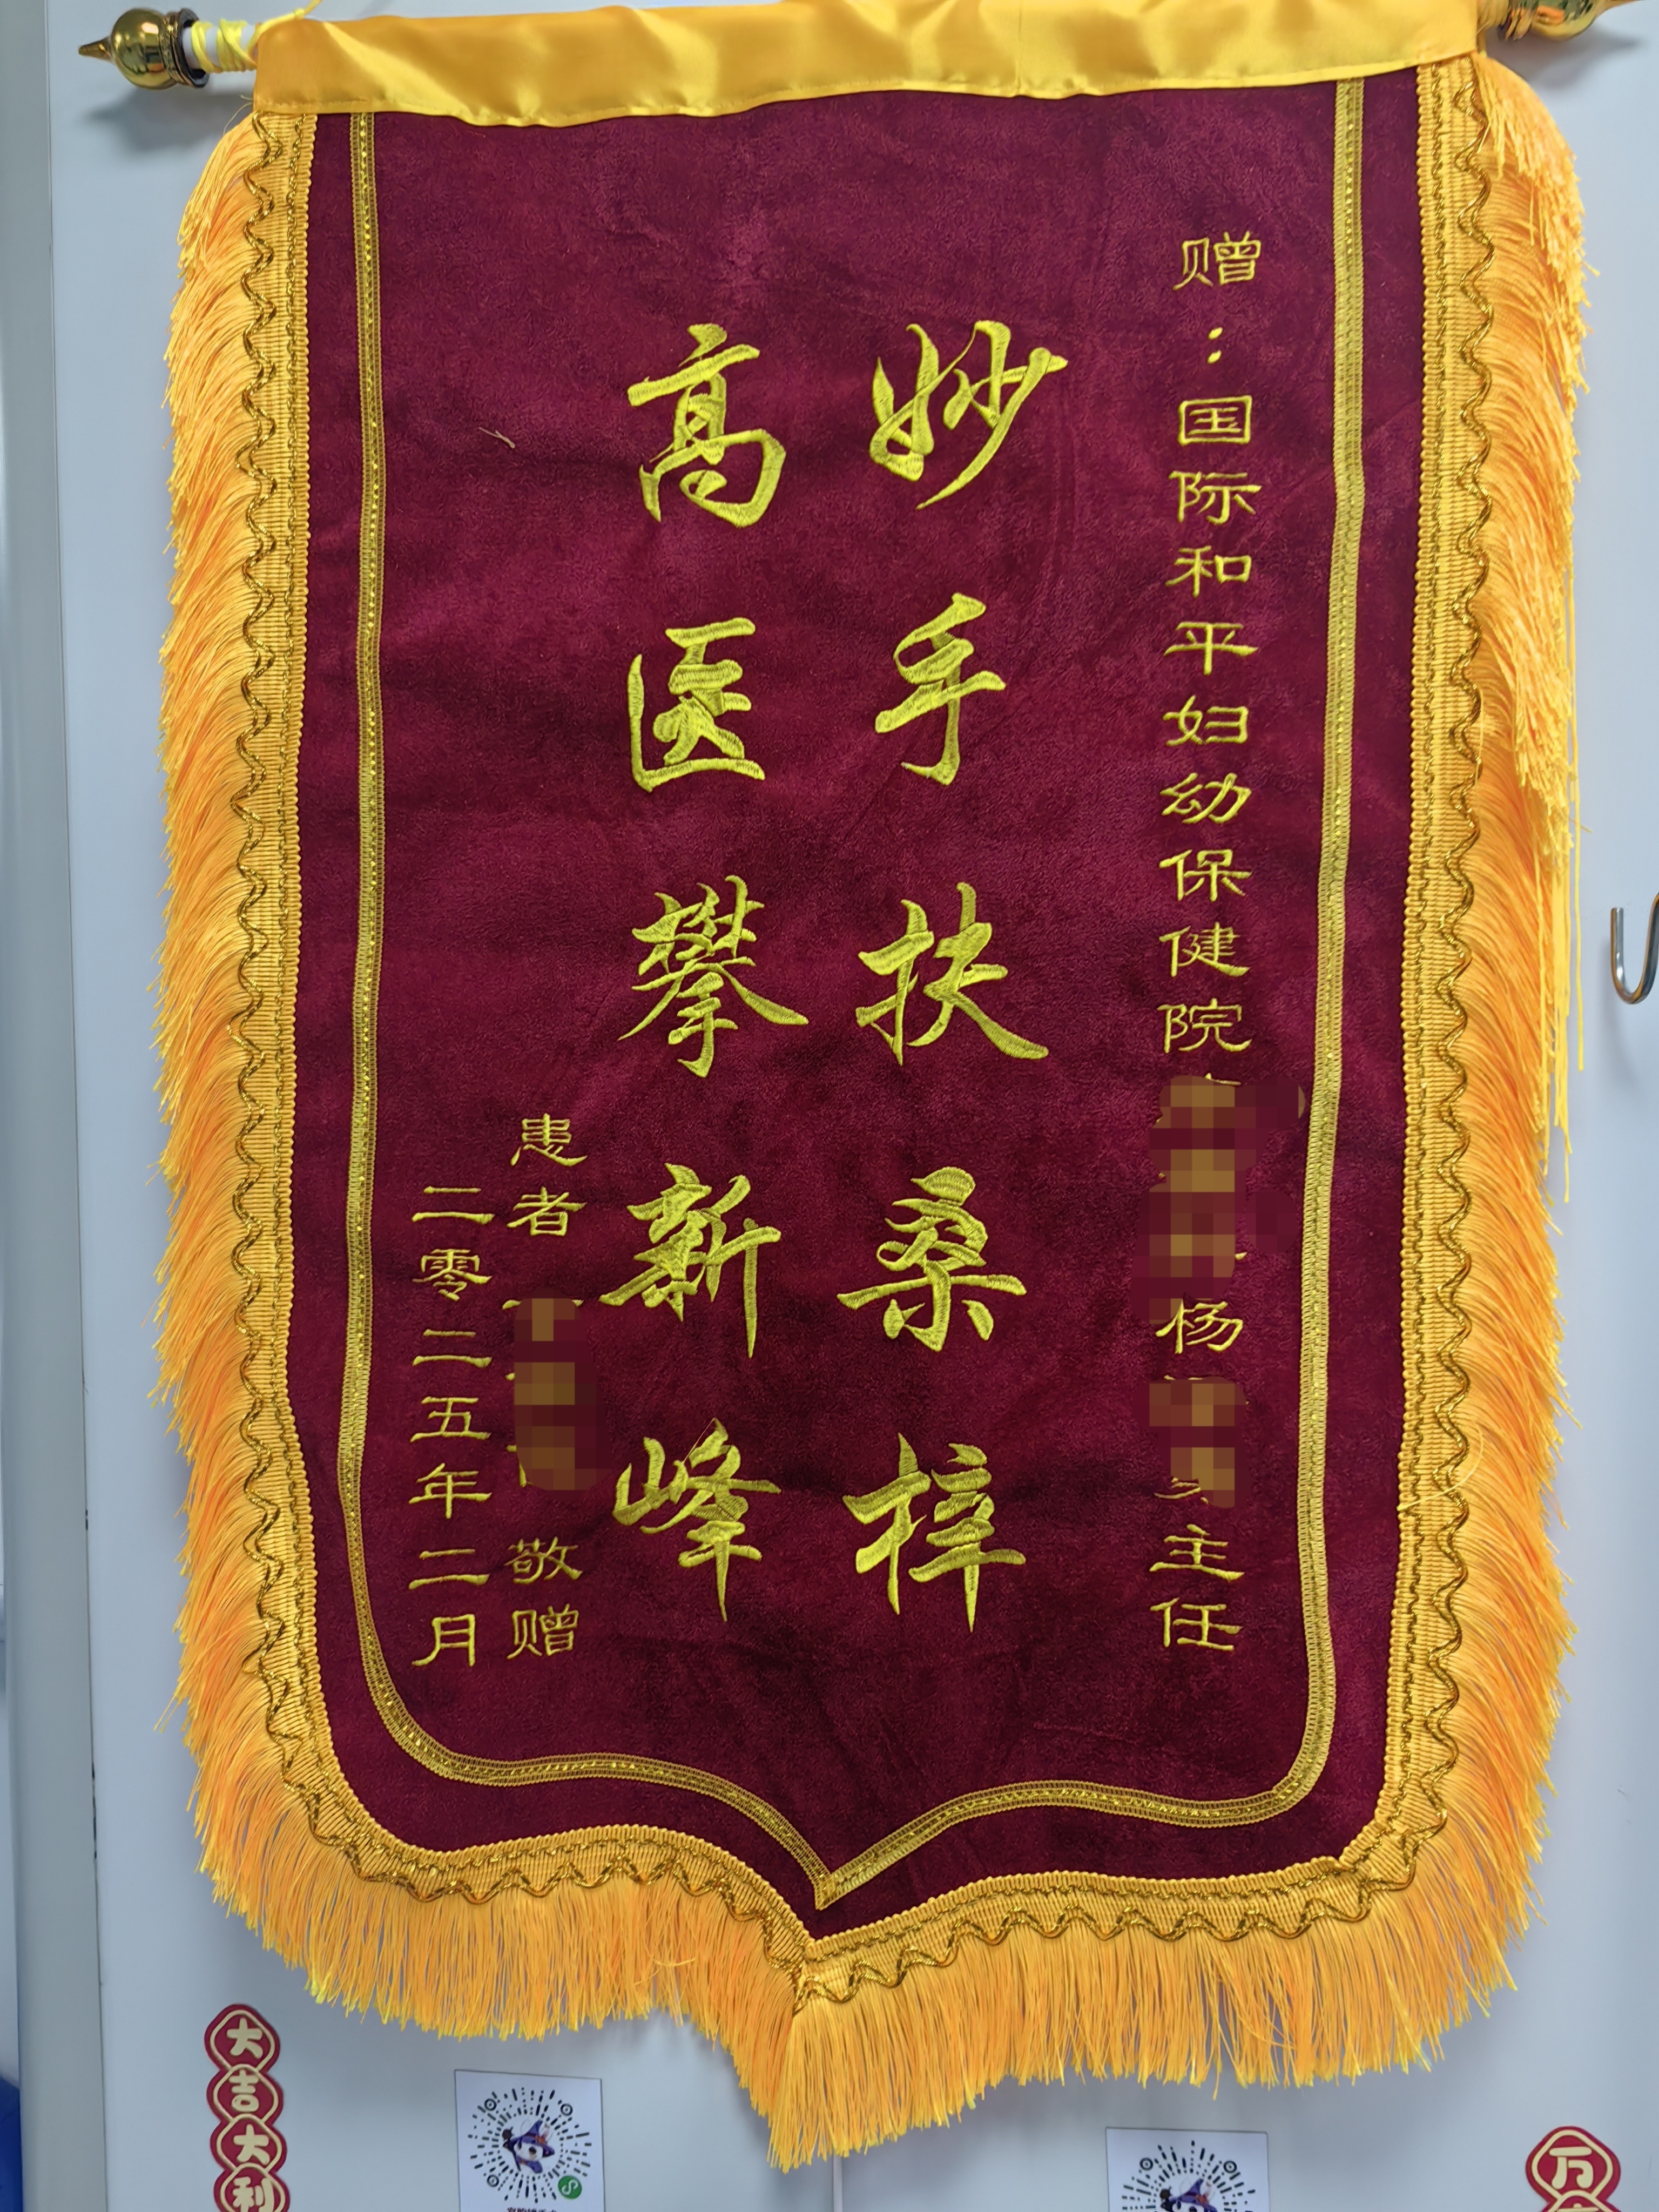 赠：国际和平妇幼保健院
杨
主任
妙手扶桑梓
高医攀新峰
患者
敬赠
二零二五年二月
大吉大利
万